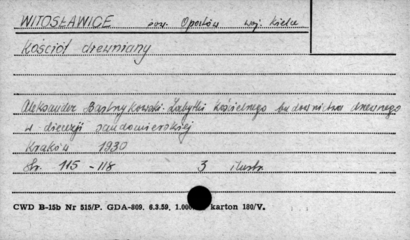 WITOSŁAWICE pow. Opatów woj. Kielce
Kościół drewniany
Aleksander Bastrzykowski. Zabytki kościelnego budownictwa drewnego
w diecezji sandomierskiej
Kraków 1930
Str. 115 - 118 3 ilustr.
CWD B-15b Nr 515/P. GDA-809. 6.3.59. 1.000 karton 180/V.